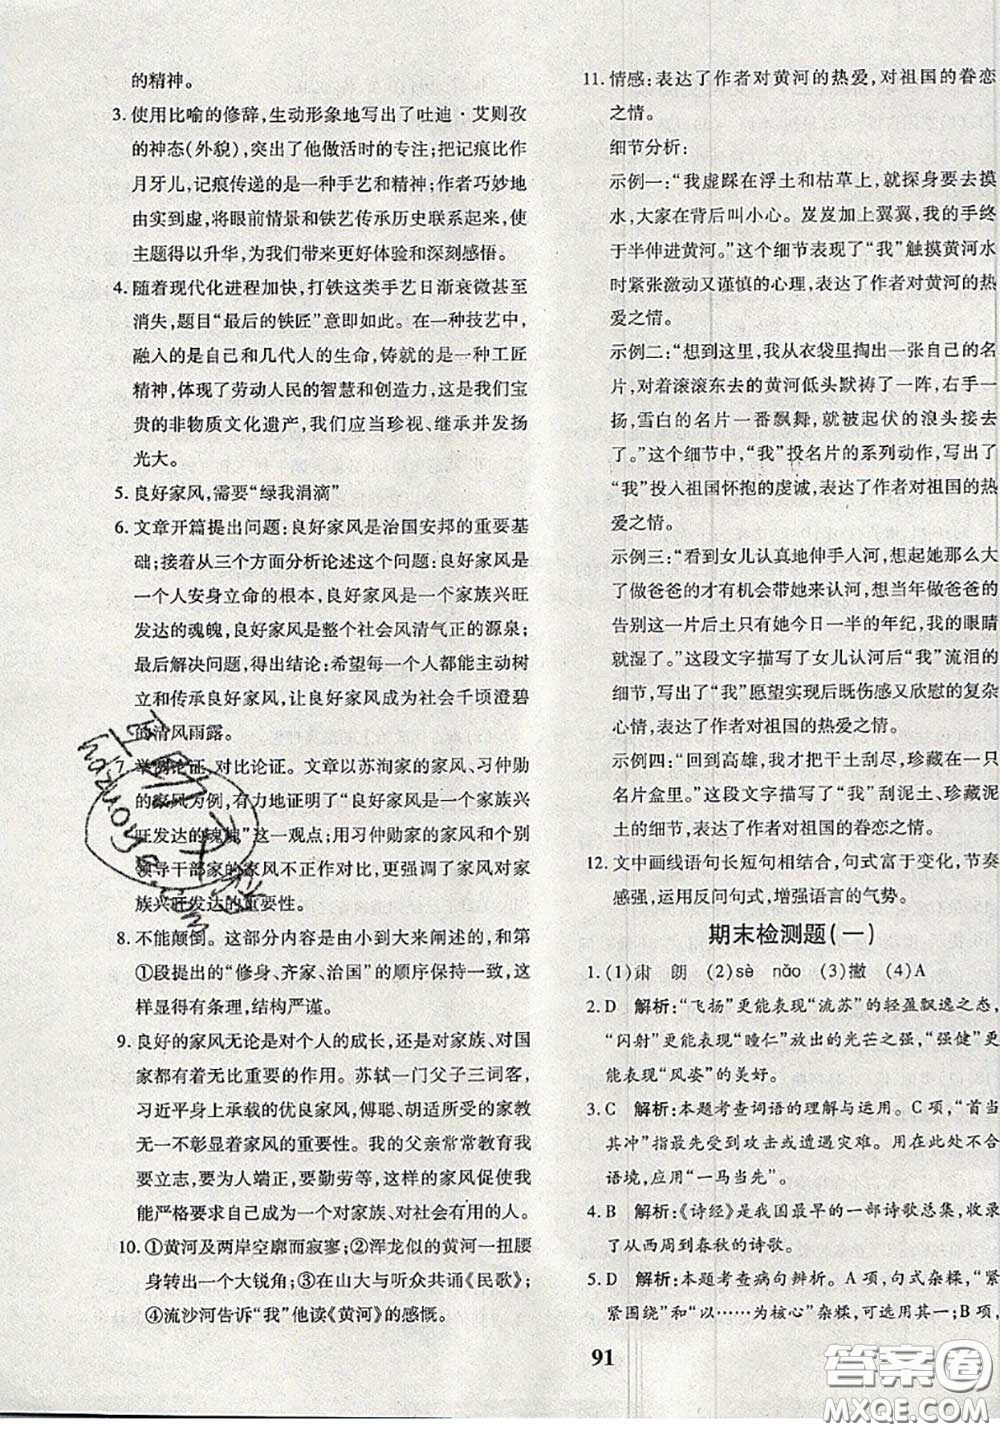 的精神。
3. 使用比喻的修辞,生动形象地写出了吐迪·艾则孜
的神态(外貌),突出了他做活时的专注;把记痕比作
月牙儿,记痕传递的是一种手艺和精神;作者巧妙地
由实到虚,将眼前情景和铁艺传承历史联系起来,使
主题得以升华,为我们带来更好体验和深刻感悟。
4. 随着现代化进程加快,打铁这类手艺日渐衰微甚至
消失,题目“最后的铁匠”意即如此。在一种技艺中,
融入的是自己和几代人的生命,铸就的是一种工匠
精神,体现了劳动人民的智慧和创造力,这是我们宝
贵的非物质文化遗产,我们应当珍视、继承并发扬
光大。
5. 良好家风,需要“绿我涓滴”
6. 文章开篇提出问题:良好家风是治国安邦的重要基
础;接着从三个方面分析论述这个问题:良好家风是
一个人安身立命的根本,良好家风是一个家族兴旺
发达的魂魄,良好家风是整个社会风清气正的源泉;
最后解决问题,得出结论:希望每一个人都能主动树
立和传承良好家风,让良好家风成为社会千顷澄碧
的清风雨露。
举例论证、对比论证。文章以苏洵家的家风、习仲勋
的家风为例,有力地证明了“良好家风是一个家族兴
旺发达的魂魄”这一观点;用习仲勋家的家风和个别
领导干部家的家风不正作对比,更强调了家风对家
族兴旺发达的重要性。
8. 不能颠倒。这部分内容是由小到大来阐述的,和第
①段提出的“修身、齐家、治国”的顺序保持一致,这
样显得有条理,结构严谨。
9. 良好的家风无论是对个人的成长,还是对家族、对国
家都有着无比重要的作用。苏轼一门父子三词客,
习近平身上承载的优良家风,傅聪、胡适所受的家教
无一不彰显着家风的重要性。我的父亲常常教育我
要立志,要为人端正,要勤劳等,这样的家风促使我
能严格要求自己成为一个对家族、对社会有用的人。
10. ①黄河及两岸空廓而寂寥;②浑龙似的黄河一扭腰
身转出一个大锐角;③在山大与听众共诵《民歌》;
④流沙河告诉“我”他读《黄河》的感慨。
11. 情感:表达了作者对黄河的热爱,对祖国的眷恋
之情。
细节分析:
示例一:“我虚踩在浮土和枯草上,就探身要去摸
水,大家在背后叫小心。岌岌加上翼翼,我的手终
于半伸进黄河。”这个细节表现了“我”触摸黄河水
时紧张激动又谨慎的心理,表达了作者对黄河的热
爱之情。
示例二:“想到这里,我从衣袋里掏出一张自己的名
片,对着滚滚东去的黄河低头默祷了一阵,右手一
扬,雪白的名片一番飘舞,就被起伏的浪头接去
了。”这个细节中,“我”投名片的系列动作,写出了
“我”投入祖国怀抱的虔诚,表达了作者对祖国的热
爱之情。
示例三:“看到女儿认真地伸手入河,想起她那么大
了做爸爸的才有机会带她来认河,想当年做爸爸的
告别这一片后土只有她今日一半的年纪,我的眼睛
就湿了。”这段文字描写了女儿认河后“我”流泪的
细节,写出了“我”愿望实现后既伤感又欣慰的复杂
心情,表达了作者对祖国的热爱之情。
示例四:“回到高雄,我把干土刮尽,珍藏在一只
名片盒里。”这段文字描写了“我”刮泥土、珍藏泥
土的细节,表达了作者对祖国的眷恋之情。
12. 文中画线语句长短句相结合,句式富于变化,节奏
感强,运用反问句式,增强语言的气势。
期末检测题(一)
1. (1)肃 朗 (2)sè nǎo (3)撇 (4)A
2. D 解析:“飞扬”更能表现“流苏”的轻盈飘逸之态,
“闪射”更能表现“瞳仁”放出的光芒之强,“强健”更
能表现“风姿”的美好。
3. C 解析:本题考查词语的理解与运用。C项,“首当
其冲”指最先受到攻击或遭遇灾难。用在此处不合
语境,应用“一马当先”。
4. B 解析:《诗经》是我国最早的一部诗歌总集,收录
了从西周到春秋的诗歌。
5. D 解析:本题考查病句辨析。A项,句式杂糅,“紧
紧围绕”和“以……为核心”杂糅,可选用其一;B项,
91
答案圈
MXQE.COM